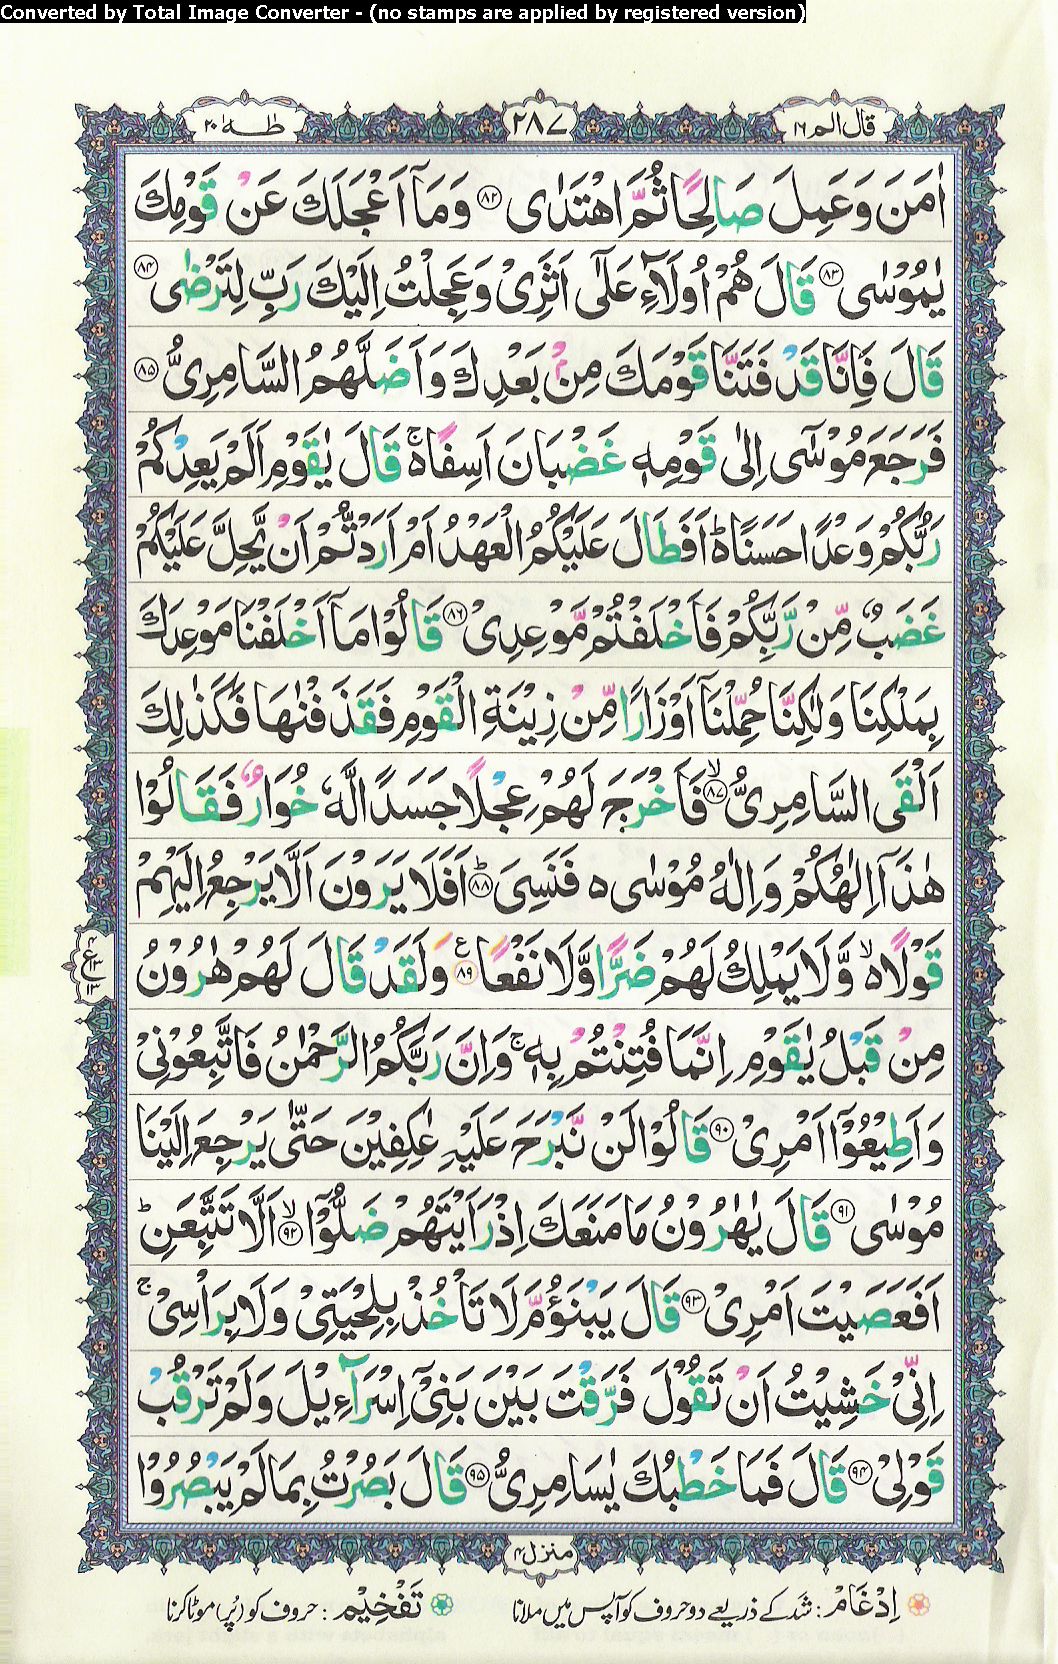 Converted by Total Image Converter - (no stamps are applied by registered version)
قال الم ۱۶ ۲۸۷ طٰہٰ ۲۰
اٰمَنَ وَعَمِلَ صَالِحًا ثُمَّ اهْتَدٰى ﴿۸۲﴾ وَمَاۤ اَعْجَلَكَ عَنْ قَوْمِكَ
يٰمُوْسٰى ﴿۸۳﴾ قَالَ هُمْ اُولَآءِ عَلٰٓى اَثَرِىْ وَعَجِلْتُ اِلَيْكَ رَبِّ لِتَرْضٰى ﴿۸۴﴾
قَالَ فَاِنَّا قَدْ فَتَنَّا قَوْمَكَ مِنْۢ بَعْدِكَ وَاَضَلَّهُمُ السَّامِرِىُّ ﴿۸۵﴾
فَرَجَعَ مُوْسٰۤى اِلٰى قَوْمِهٖ غَضْبَانَ اَسِفًا ۚ قَالَ يٰقَوْمِ اَلَمْ يَعِدْكُمْ
رَبُّكُمْ وَعْدًا حَسَنًا ؕ اَفَطَالَ عَلَيْكُمُ الْعَهْدُ اَمْ اَرَدْتُّمْ اَنْ يَّحِلَّ عَلَيْكُمْ
غَضَبٌ مِّنْ رَّبِّكُمْ فَاَخْلَفْتُمْ مَّوْعِدِىْ ﴿۸۶﴾ قَالُوْا مَاۤ اَخْلَفْنَا مَوْعِدَكَ
بِمَلْكِنَا وَلٰكِنَّا حُمِّلْنَاۤ اَوْزَارًا مِّنْ زِيْنَةِ الْقَوْمِ فَقَذَفْنٰهَا فَكَذٰلِكَ
اَلْقَى السَّامِرِىُّ ﴿۸۷﴾ۙ فَاَخْرَجَ لَهُمْ عِجْلًا جَسَدًا لَّهٗ خُوَارٌ فَقَالُوْا
هٰذَاۤ اِلٰهُكُمْ وَاِلٰهُ مُوْسٰى ہ فَنَسِىَ ﴿۸۸﴾ؕ اَفَلَا يَرَوْنَ اَلَّا يَرْجِعُ اِلَيْهِمْ
قَوْلًا ۙ وَّلَا يَمْلِكُ لَهُمْ ضَرًّا وَّلَا نَفْعًا ﴿۸۹﴾ع وَلَقَدْ قَالَ لَهُمْ هٰرُوْنُ
ع ۴ ۱۳ ۱۳
مِنْ قَبْلُ يٰقَوْمِ اِنَّمَا فُتِنْتُمْ بِهٖ ۚ وَاِنَّ رَبَّكُمُ الرَّحْمٰنُ فَاتَّبِعُوْنِىْ
وَاَطِيْعُوْۤا اَمْرِىْ ﴿۹۰﴾ قَالُوْا لَنْ نَّبْرَحَ عَلَيْهِ عٰكِفِيْنَ حَتّٰى يَرْجِعَ اِلَيْنَا
مُوْسٰى ﴿۹۱﴾ قَالَ يٰهٰرُوْنُ مَا مَنَعَكَ اِذْ رَاَيْتَهُمْ ضَلُّوْۤا ﴿۹۲﴾ۙ اَلَّا تَتَّبِعَنِ ؕ
اَفَعَصَيْتَ اَمْرِىْ ﴿۹۳﴾ قَالَ يَبْنَؤُمَّ لَا تَاْخُذْ بِلِحْيَتِىْ وَلَا بِرَاْسِىْ ۚ
اِنِّىْ خَشِيْتُ اَنْ تَقُوْلَ فَرَّقْتَ بَيْنَ بَنِىْۤ اِسْرَآءِيْلَ وَلَمْ تَرْقُبْ
قَوْلِىْ ﴿۹۴﴾ قَالَ فَمَا خَطْبُكَ يٰسَامِرِىُّ ﴿۹۵﴾ قَالَ بَصُرْتُ بِمَا لَمْ يَبْصُرُوْا
منزل ۴
اِدْغَام: شد کے ذریعے دو حروف کو آپس میں ملانا تَفْخِيْم: حروف کو (پُر) موٹا کرنا